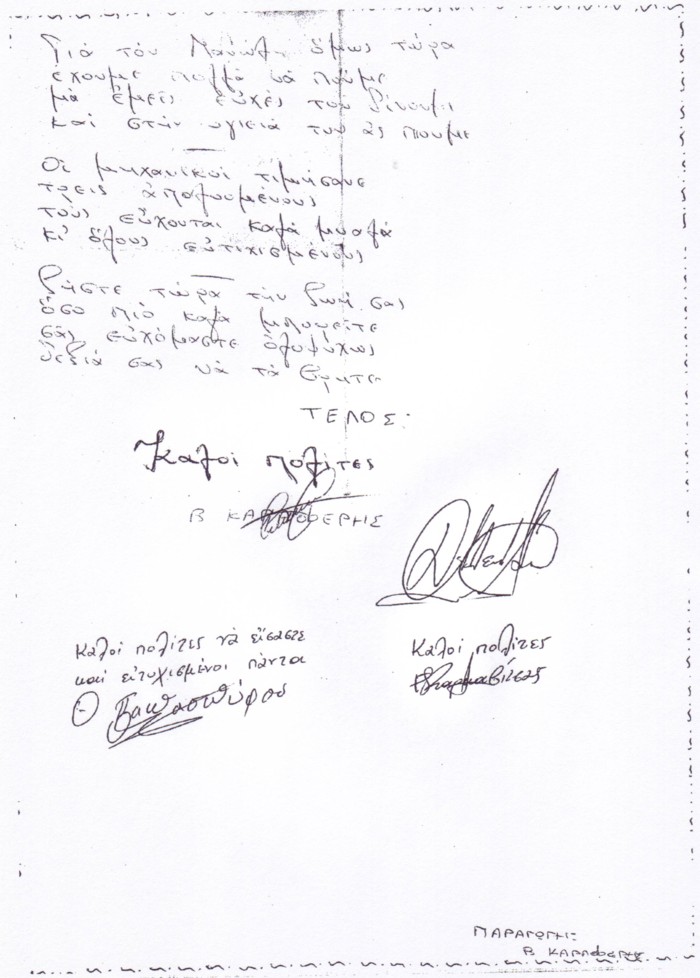 Γιά τόν Μανώλη ὅμως τώρα
ἔχουμε πολλά νά ποῦμε
μά ἐμεῖς εὐχές τοῦ δίνουμε
καί στήν υγιειά του ἄς πιουμε
Οἱ μηχανικοί τιμήσανε
τρεις ἀπολυομένους
τούς εὔχονται καλά μυαλά
κι' ὅλους εὐτιχισμένους
Ζῆστε τώρα τήν ζωή σας
ὅσο πιό καλά μπορεῖτε
σᾶς εὐχόμαστε ὁλοψύχως
δεξιά σας νά τά βρῆτε
ΤΕΛΟΣ:
Καλοί πολίτες
Β ΚΑΡΑΦΕΡΗΣ
Καλοί πολίτες νά εἴσαστε
καί εὐτυχισμένοι πάντα
Θ Παπασπύρου
Καλοί πολίτες
ΠΑΡΑΓΩΓΗ:
Β ΚΑΡΑΦΕΡΗΣ